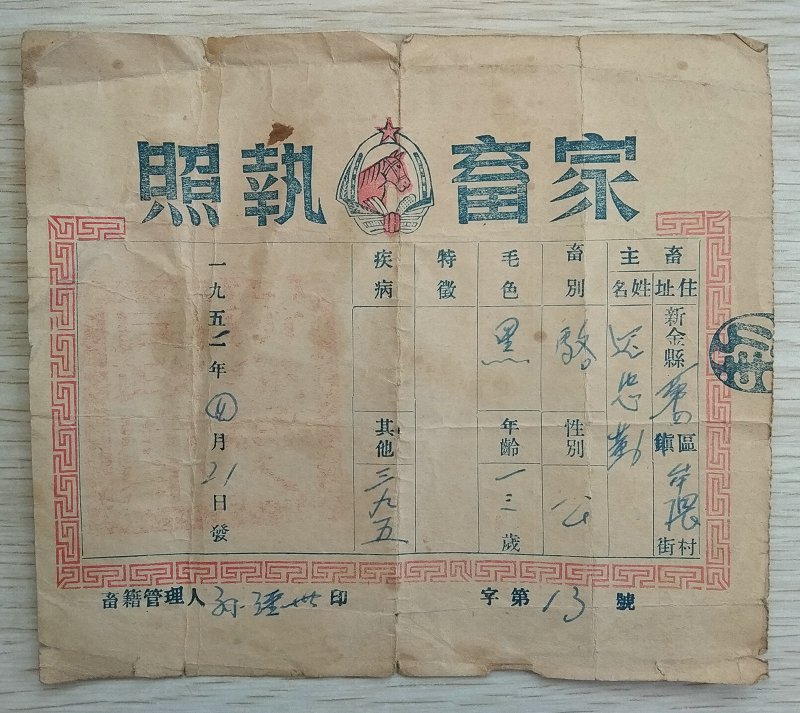 家畜執照
畜主
住址
新金縣
區鎮
村街
姓名
忠勤
畜別
性別
公
毛色
黑
年齡
一三歲
特徵
疾病
其他
三九五
一九五二年四月21日發
畜籍管理人 印
字第13號